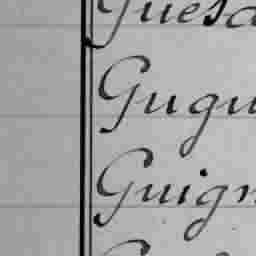 Guesd
Gugu
Guign